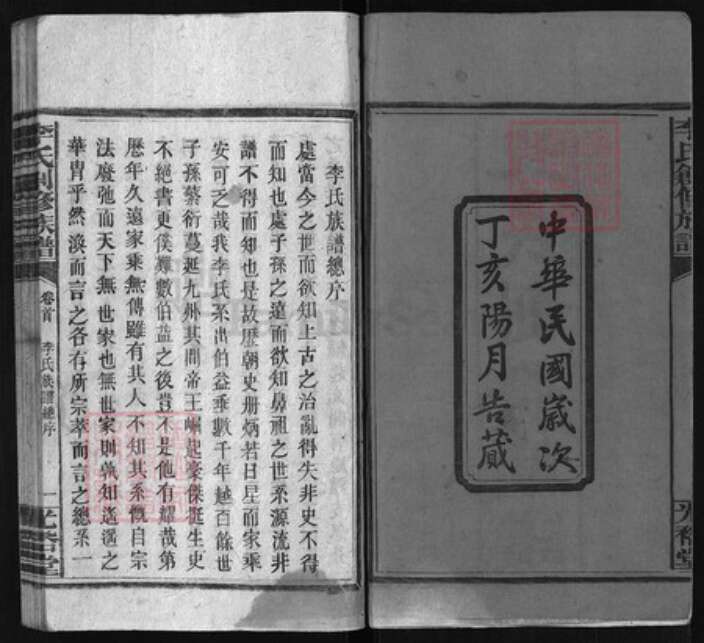 李氏創修族譜
光裕堂
中華民國歲次
丁亥陽月告蕆
李氏族譜總序
處當今之世而欲知上古之治亂得失非史不得
而知也處子孫之遠而欲知鼻祖之世系源流非
譜不得而知也是故歷朝史册炳若日星而家乘
安可乏哉我李氏系出伯益垂數千年越百餘世
子孫蕃衍蔓延九州其間帝王崛起豪傑挺生史
不絕書更僕難數伯益之後豈不是他有耀哉第
歷年久遠家乘無傳雖有其人不知其系慨自宗
法廢弛而天下無世家也無世家則孰知遙遙之
華胄乎然渙而言之各有所宗萃而言之總系一
李氏創修族譜
卷首
李氏族譜總序
一
光裕堂